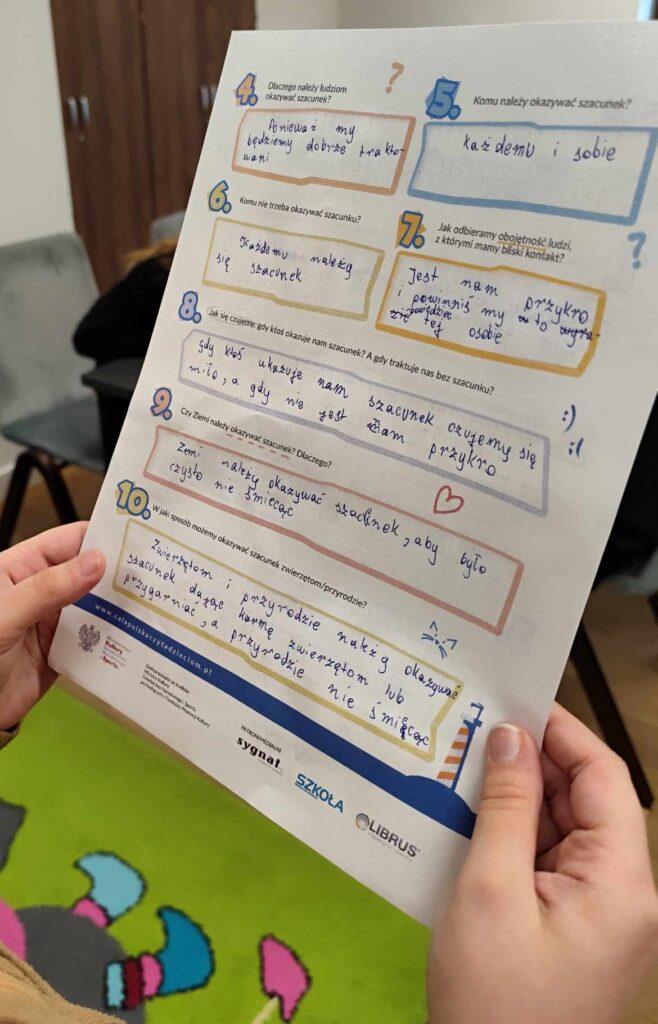 4.
Dlaczego należy ludziom
okazywać szacunek?
?
Ponieważ my
będziemy dobrze trakto-
wani
5.
Komu należy okazywać szacunek?
każdemu i sobie
6.
Komu nie trzeba okazywać szacunku?
Każdemu należy
się szacunek
7.
Jak odbieramy obojętność ludzi,
z którymi mamy bliski kontakt?
?
Jest nam przykro
i powinniśmy to
powiedzieć
tej osobie
8.
Jak się czujemy, gdy ktoś okazuje nam szacunek? A gdy traktuje nas bez szacunku?
gdy ktoś ukazuje nam szacunek czujemy się
miło, a gdy nie jest nam przykro
:)
;(
9.
Czy Ziemi należy okazywać szacunek? Dlaczego?
Zemi należy okazywać szacunek, aby było
czysto nie śmiecąc
10.
W jaki sposób możemy okazywać szacunek zwierzętom/przyrodzie?
Zwierzętom i przyrodzie należy okazywać
szacunek dając karmę zwierzętom lub
przygarniać, a przyrodzie nie śmięcąc
www.calapolskaczytadzieciom.pl
Kultury
i Sportu
Dofinansowano ze środków
PATRONI MEDIALNI
sygnał
SZKOŁA
LIBRUS